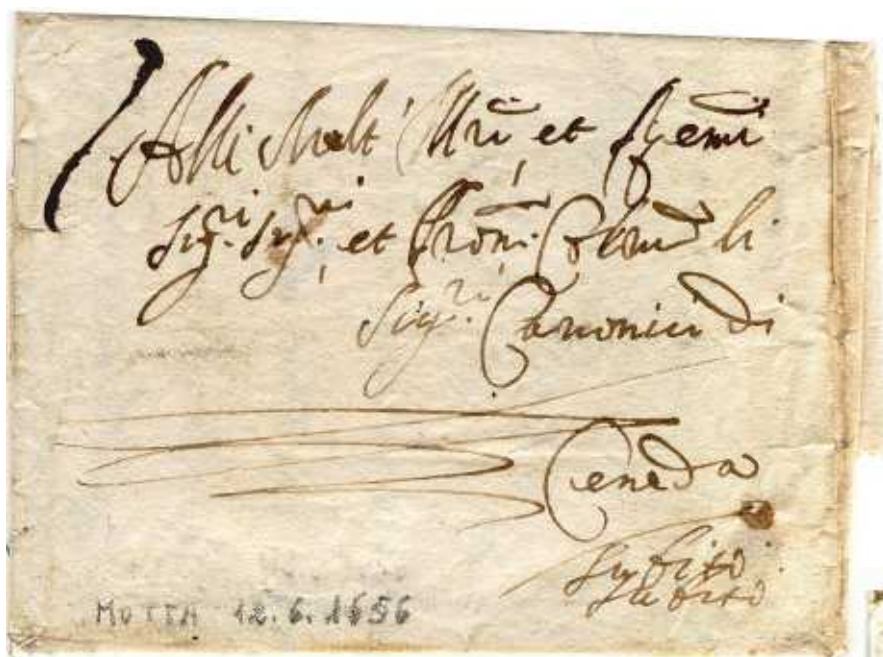 Alli Molt' Illri, et
Sig.ri Sig.ri, et Proni Colmi li
Sig.ri Canonici di
Ceneda
subito
subito
MOTTA 12.6.1656